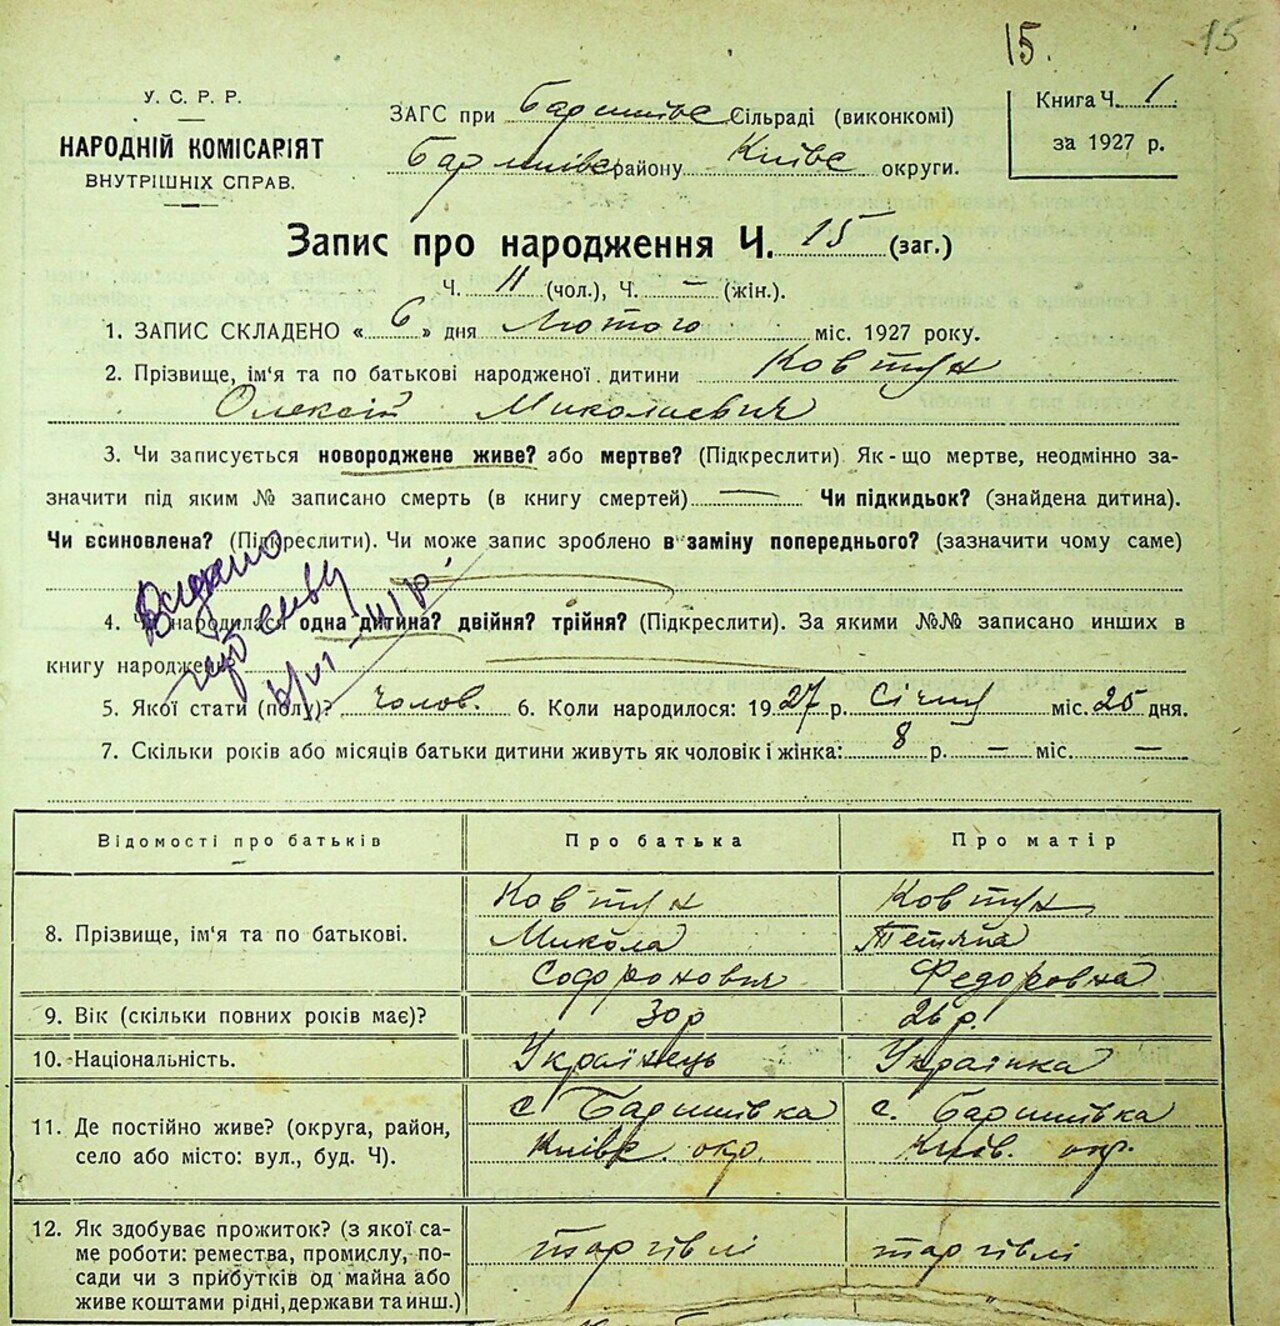 15.
15
У. С. Р. Р.
НАРОДНІЙ КОМІСАРІЯТ
ВНУТРІШНІХ СПРАВ.
ЗАГС при Баришівс Сільраді (виконкомі)
Баришівс району Київс округи.
Книга Ч. 1
за 1927 р.
Запис про народження Ч. 15 (заг.)
Ч. 11 (чол.), Ч. — (жін.).
1. ЗАПИС СКЛАДЕНО « 6 » дня Лютого міс. 1927 року.
2. Прізвище, ім'я та по батькові народженої дитини Ковтун
Олексій Миколаевич
3. Чи записується новороджене живе? або мертве? (Підкреслити) Як-що мертве, неодмінно за-
значити під яким № записано смерть (в книгу смертей) — Чи підкидьок? (знайдена дитина).
Чи єсиновлена? (Підкреслити). Чи може запис зроблено в заміну попереднього? (зазначити чому саме)
Видано
4. Чи народилася одна дитина? двійня? трійня? (Підкреслити). За якими №№ записано инших в
книгу народжен
5. Якої стати (полу)? чолов. 6. Коли народилося: 1927 р. Січня міс. 25 дня.
7. Скільки років або місяців батьки дитини живуть як чоловік і жінка: 8 р. — міс. —
Відомості про батьків Про батька Про матір
8. Прізвище, ім'я та по батькові.
Ковтун
Микола
Софронович
Ковтун
Тетяна
Федоровна
9. Вік (скільки повних років має)? 30 р 26 р.
10. Національність. Українець Українка
11. Де постійно живе? (округа, район,
село або місто: вул., буд. Ч).
с Баришівка
Київс. окр.
с. Баришівка
Київ. окр.
12. Як здобуває прожиток? (з якої са-
ме роботи: ремества, промислу, по-
сади чи з прибутків од майна або
живе коштами рідні, держави та инш.)
торгівлі
торгівлі